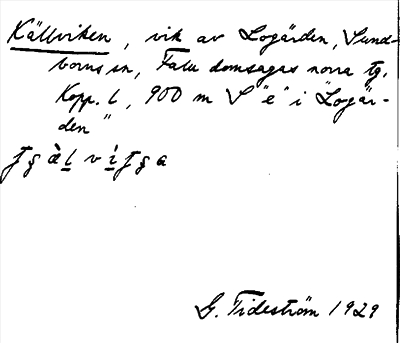 Källviken, vik av Logärden, Sund-
borns sn, Falu domsagas norra tg,
Kopp. l, 900 m S "e" i "Logär-
den"
G. Tideström 1929